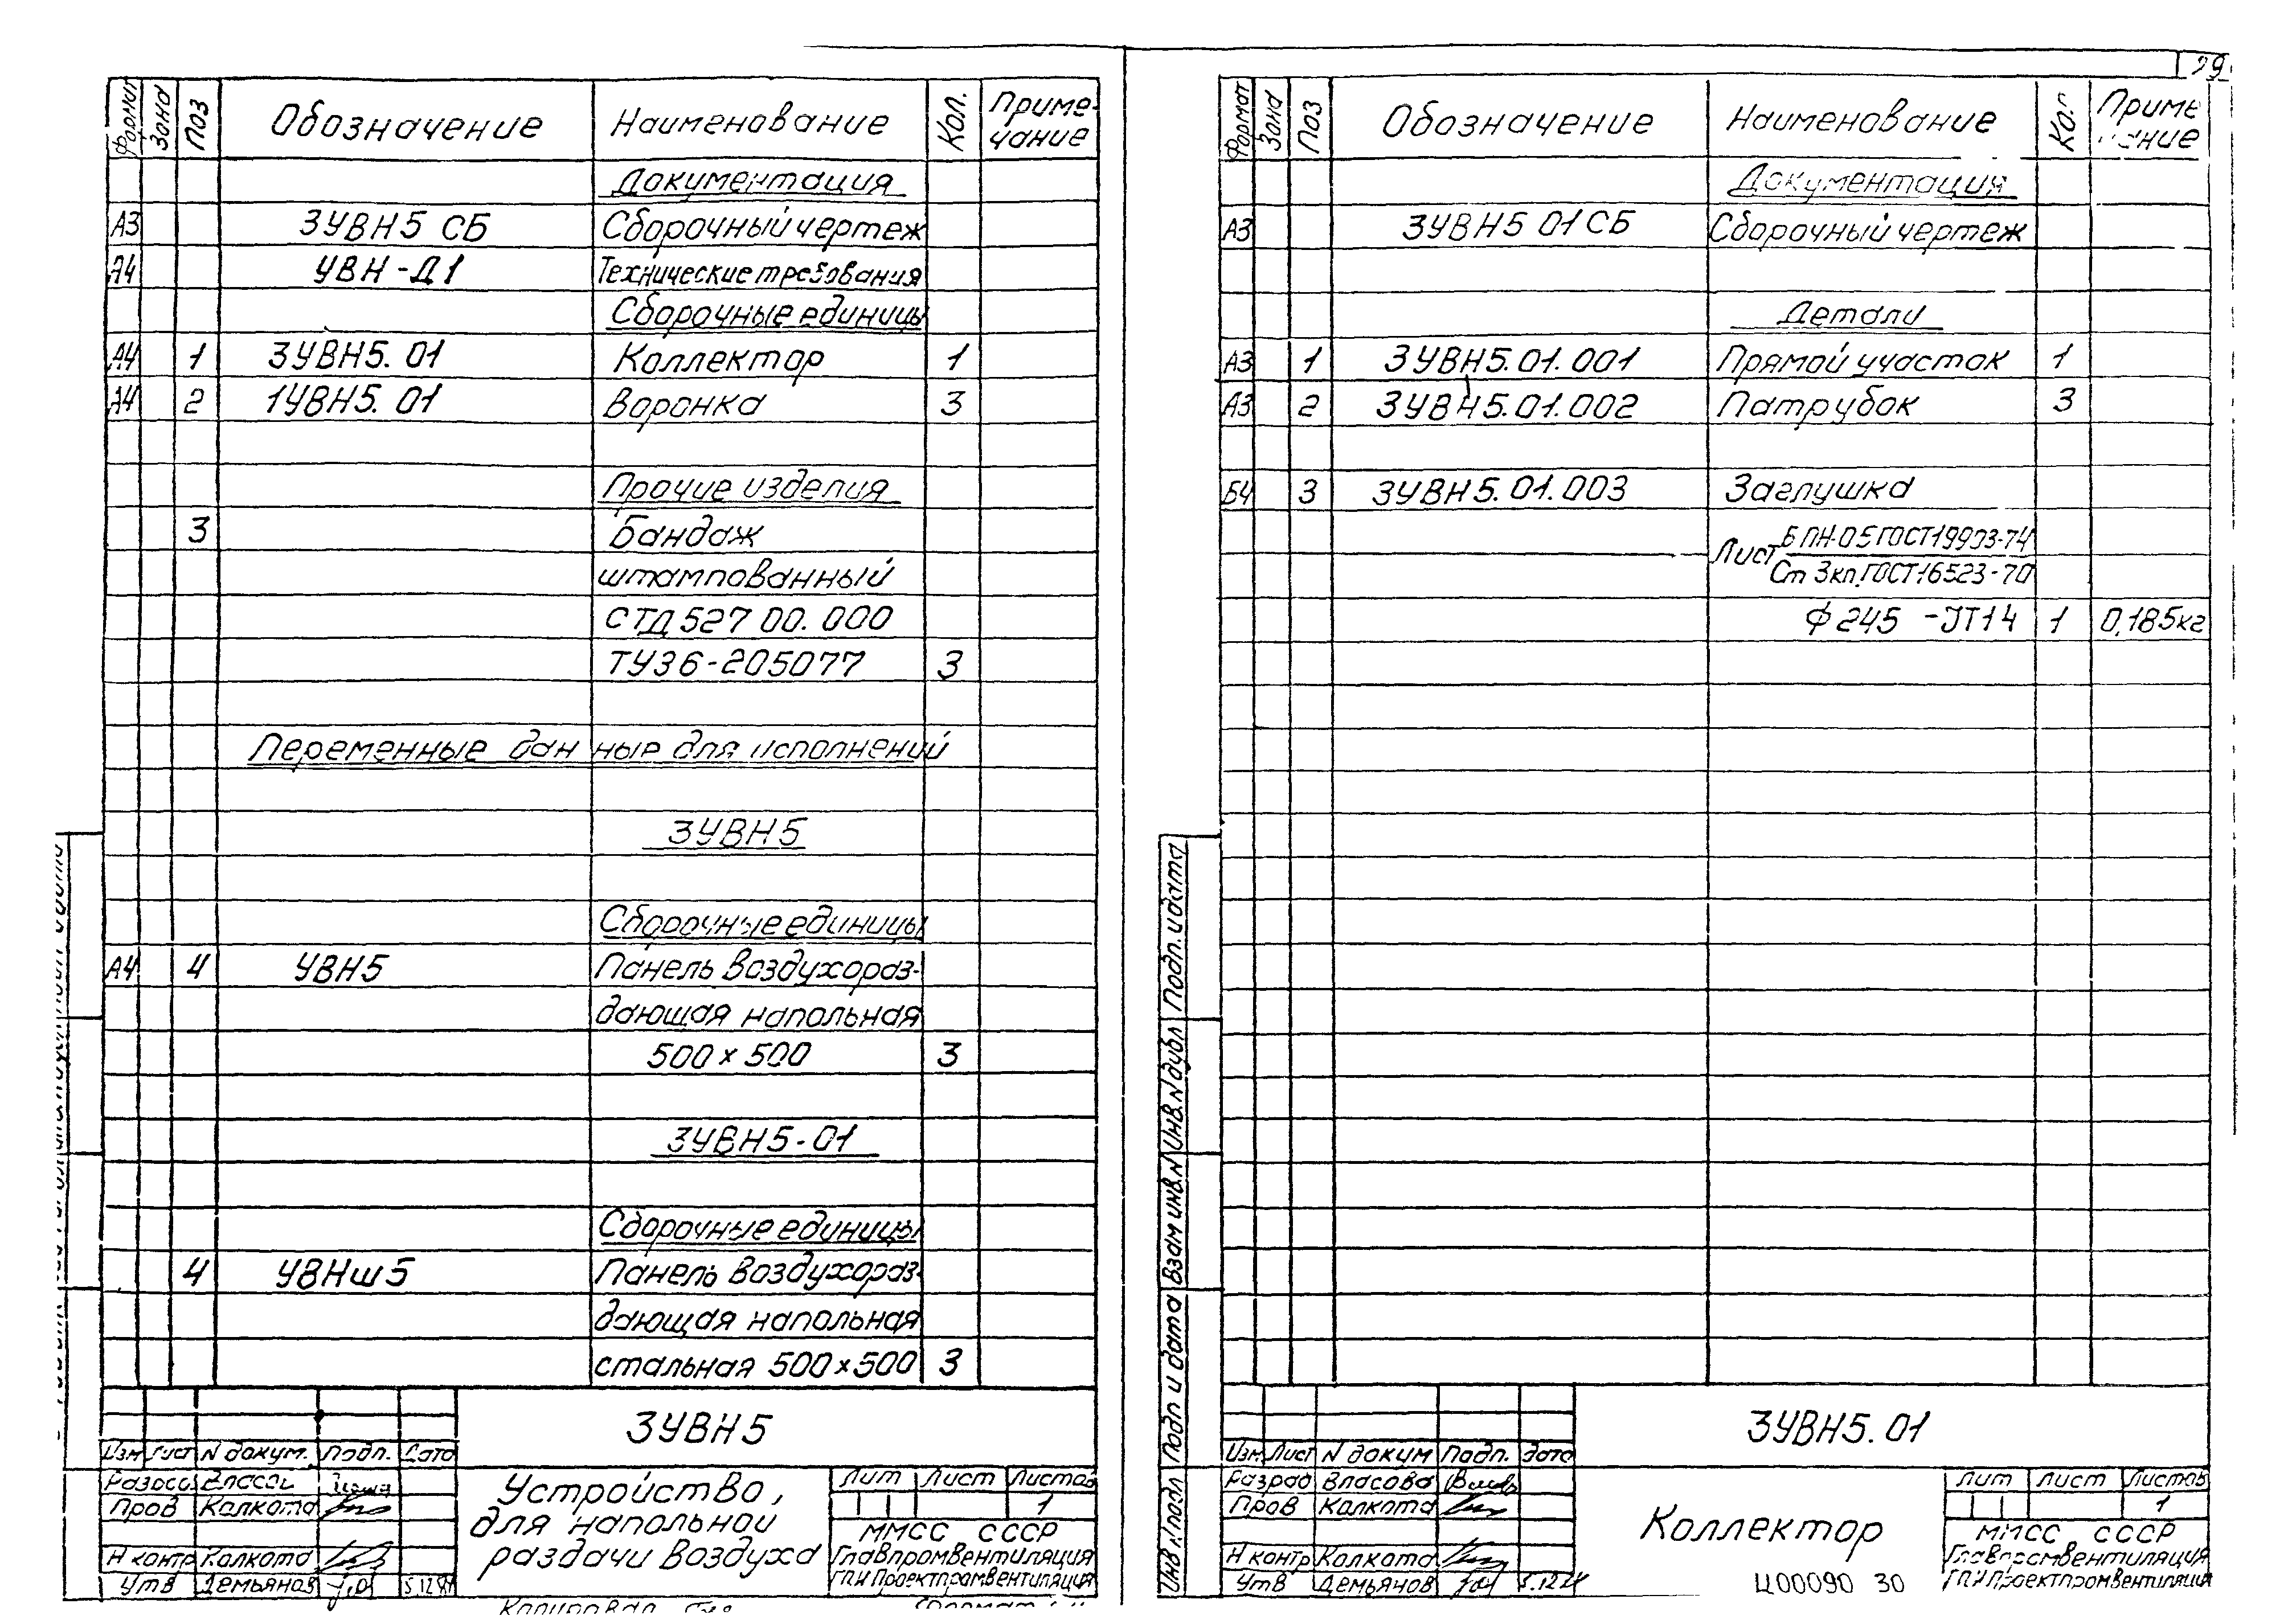 29
Формат Зона Поз Обозначение Наименование Кол. Приме-
чание
Документация
А3 3УВН5 СБ Сборочный чертеж
А4 УВН-Д1 Технические требования
Сборочные единицы
А4 1 3УВН5.01 Коллектор 1
А4 2 1УВН5.01 Воронка 3
Прочие изделия
3 Бандаж
штампованный
СТД 527 00.000
ТУ36-205077 3
Переменные данные для исполнений
3УВН5
Сборочные единицы
А4 4 УВН5 Панель воздухораз-
дающая напольная
500×500 3
3УВН5-01
Сборочные единицы
4 УВНш5 Панель воздухораз-
дающая напольная
стальная 500×500 3
3УВН5
Изм Лист N докум. Подп. Дата
Пров Калката
Н контр Калката
Утв Демьянов
Устройство,
для напольной
раздачи воздуха
Лит Лист Листов
1
ММСС СССР
Главпромвентиляция
ГПИ Проектпромвентиляция
Копировал
Формат Зона Поз Обозначение Наименование Кол Приме
чание
Документация
А3 3УВН5 01СБ Сборочный чертеж
Детали
А3 1 3УВН5.01.001 Прямой участок 1
А3 2 3УВН5.01.002 Патрубок 3
Б4 3 3УВН5.01.003 Заглушка
Лист Б ПН-0 5 ГОСТ19903-74
Ст 3кп.ГОСТ16523-70
Ф 245 -JT14 1 0,185кг
Инв N подл Подп и дата Взам инв.N Инв.N дубл Подп. и дата
3УВН5.01
Изм Лист N докум Подп. дата
Разраб Власова
Пров Калката
Н контр Калката
Утв Демьянов
Коллектор
Лит Лист Листов
1
ММСС СССР
Главпромвентиляция
ГПИ Проектпромвентиляция
Ц00090 30